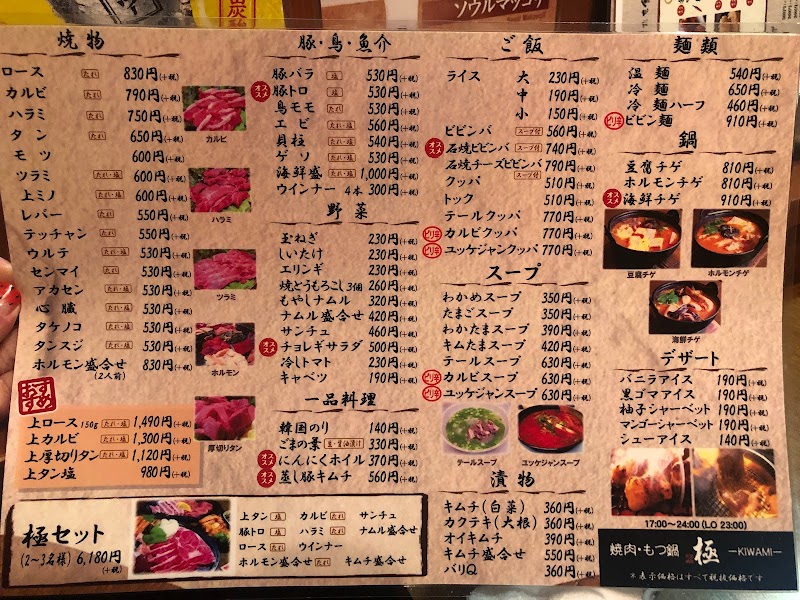 ソウルマッコリ
焼物
ロース たれ 830円(+税)
カルビ たれ 790円(+税)
ハラミ たれ 750円(+税)
タン たれ 650円(+税)
モツ 600円(+税)
ツラミ たれ・塩 600円(+税)
上ミノ たれ・塩 600円(+税)
レバー たれ 550円(+税)
テッチャン たれ 550円(+税)
ウルテ たれ・塩 530円(+税)
センマイ たれ 530円(+税)
アカセン たれ 530円(+税)
心臓 たれ・塩 530円(+税)
タケノコ たれ・塩 530円(+税)
タンスジ たれ 530円(+税)
ホルモン盛合せ 830円(+税)
(2人前)
カルビ
ハラミ
ツラミ
ホルモン
厚切りタン
おすすめ
上ロース 150g たれ・塩 1,490円(+税)
上カルビ たれ・塩 1,300円(+税)
上厚切りタン たれ・塩 1,120円(+税)
上タン塩 980円(+税)
豚・鳥・魚介
豚バラ 塩 530円(+税)
オススメ 豚トロ 塩 530円(+税)
鳥モモ たれ 530円(+税)
エビ たれ・塩 560円(+税)
貝柱 たれ・塩 540円(+税)
ゲソ たれ・塩 530円(+税)
海鮮盛 たれ・塩 1,000円(+税)
ウインナー 4本 300円(+税)
野菜
玉ねぎ 230円(+税)
しいたけ 230円(+税)
エリンギ 230円(+税)
焼とうもろこし 3個 260円(+税)
もやしナムル 320円(+税)
ナムル盛合せ 420円(+税)
サンチュ 460円(+税)
オススメ チョレギサラダ 500円(+税)
冷しトマト 230円(+税)
キャベツ 190円(+税)
一品料理
韓国のり 140円(+税)
ごまの葉 330円(+税)
オススメ にんにくホイル 370円(+税)
オススメ 蒸し豚キムチ 560円(+税)
ご飯
ライス 大 230円(+税)
中 190円(+税)
小 150円(+税)
ビビンバ スープ付 560円(+税)
オススメ 石焼ビビンバ スープ付 740円(+税)
石焼チーズビビンバ スープ付 790円(+税)
クッパ 510円(+税)
トック 510円(+税)
テールクッパ 770円(+税)
ピリ辛 カルビクッパ 770円(+税)
ピリ辛 ユッケジャンクッパ 770円(+税)
スープ
わかめスープ 350円(+税)
たまごスープ 350円(+税)
わかたまスープ 390円(+税)
キムたまスープ 420円(+税)
テールスープ 630円(+税)
ピリ辛 カルビスープ 630円(+税)
ピリ辛 ユッケジャンスープ 630円(+税)
テールスープ
ユッケジャンスープ
漬物
キムチ(白菜) 360円(+税)
カクテキ(大根) 360円(+税)
オイキムチ 390円(+税)
キムチ盛合せ 550円(+税)
バリQ 360円(+税)
麺類
温麺 540円(+税)
冷麺 650円(+税)
冷麺ハーフ 460円(+税)
ピリ辛 ビビン麺 910円(+税)
鍋
豆腐チゲ 810円(+税)
ホルモンチゲ 810円(+税)
オススメ 海鮮チゲ 910円(+税)
豆腐チゲ
ホルモンチゲ
海鮮チゲ
デザート
バニラアイス 190円(+税)
黒ゴマアイス 190円(+税)
柚子シャーベット 190円(+税)
マンゴーシャーベット 190円(+税)
シューアイス 140円(+税)
極セット
(2〜3名様) 6,180円
(+税)
上タン 塩 カルビ たれ サンチュ
豚トロ 塩 ハラミ たれ ナムル盛合せ
ロース たれ ウインナー
ホルモン盛合せ たれ キムチ盛合せ
17:00〜24:00(LO 23:00)
焼肉・もつ鍋 極 —KIWAMI—
＊表示価格はすべて税抜価格です